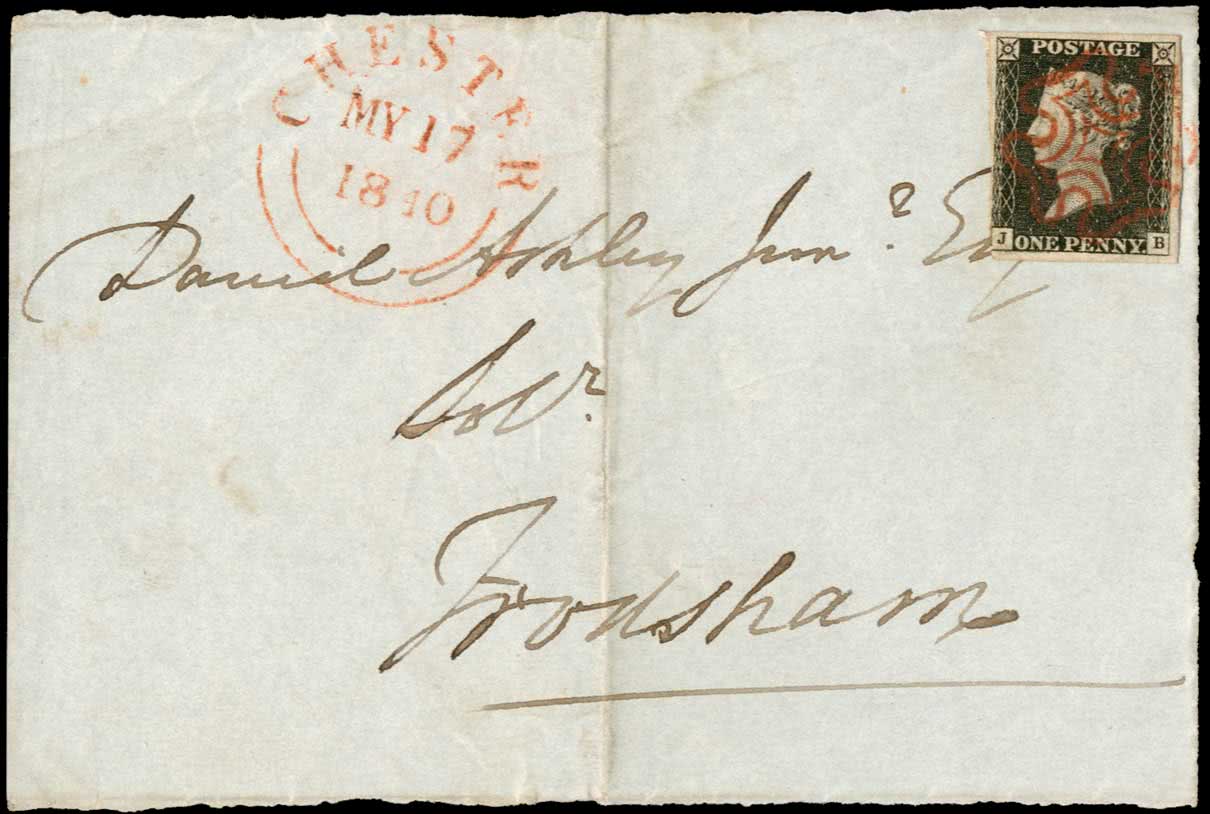 CHESTER
MY 17
1840
POSTAGE
J ONE PENNY. B
Daniel Ashley Junr. Esq
Solr.
Frodsham